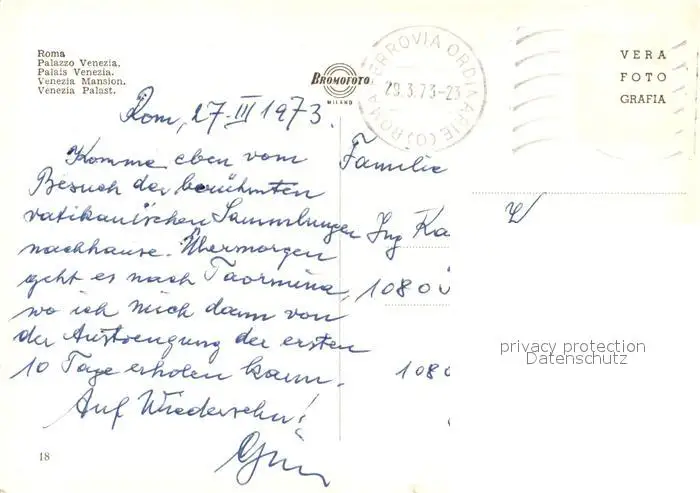 Roma
Palazzo Venezia.
Palais Venezia.
Venezia Mansion.
Venezia Palast.
BROMOFOTO
MILANO
FERROVIA ORDINARIE ROMA
29.3.73-23
VERA
FOTO
GRAFIA
Rom, 27-III 1973.
Komme eben vom
Besuch der berühmten
vatikanischen Sammlungen
nachhause. Übermorgen
geht es nach Taormina,
wo ich mich dann von
der Anstrengung der ersten
10 Tage erholen kann.
Auf Wiedersehn!
Familie
Ing Ka
1080
108
18
privacy protection
Datenschutz